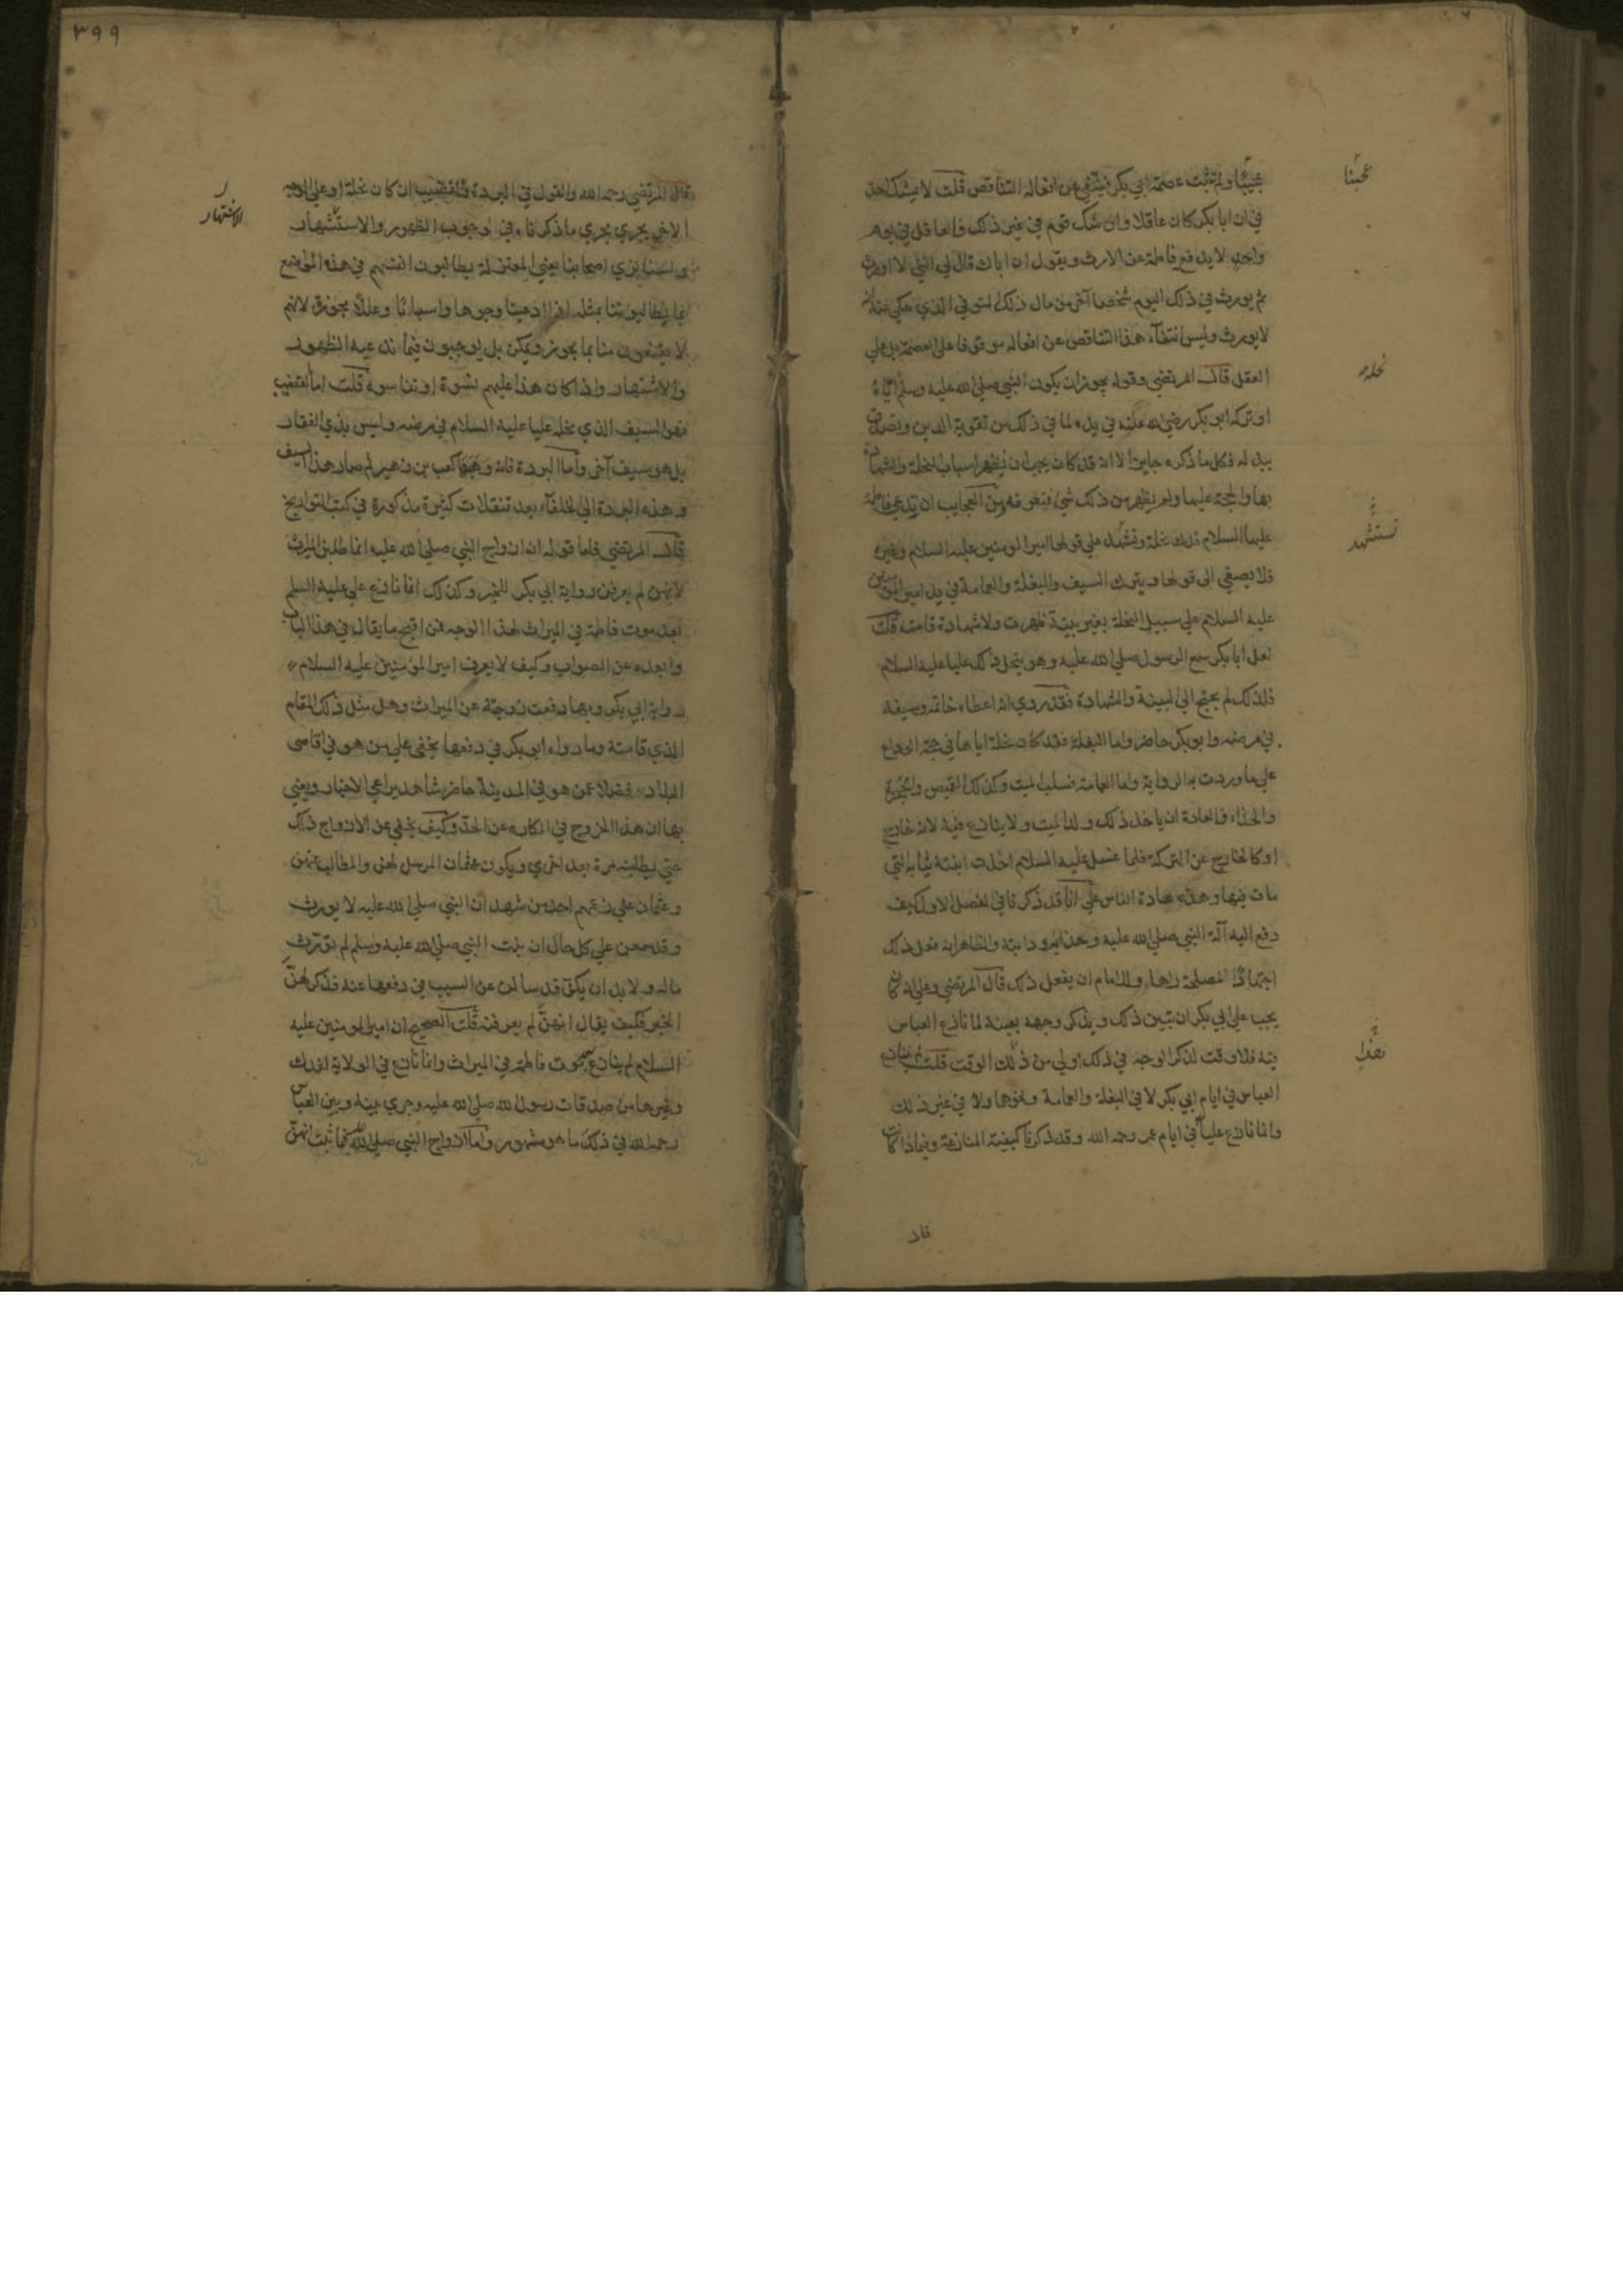 عجيبا ولم تثبت عصمة ابي بكر فينتفي عن افعاله التناقص قلت لا يشك احد
في ان ابا بكر كان عاقلا وان شك قوم في غير ذلك والعاقل في يوم
واحد لا يدفع فاطمة عن الارث ويقول ان اباك قال لي انني لا اورث
ثم يورث في ذلك اليوم شخصا آخر من مال ذلك المتوفي الذي حكي عنه انه
لا يورث وليس انتفآء هذا التناقص عن افعاله موقوفا على العصمة بل علي
العقل قال المرتضي وقوله يجوز ان يكون النبي صلي الله عليه وسلم اياه
او تركه ابو بكر رضي الله عنه في يده لما في ذلك من تقوية الدين وتصدق
ببدله فكل ما ذكره جايز الا انه قد كان يجب ان يظهر اسباب النحلة والشهادة
بها والحجة عليها ولم يظهر من ذلك شي فنعرفه ومن العجايب ان تدعي فاطمة
عليها السلام فدك نحلة وتشهد علي قولها امير المومنين عليه السلام وغيره
فلا يصغي الى قولها ويترك السيف والبغلة والعمامة في يد امير المومنين
عليه السلام علي سبيل النحلة بغير بينة ظهرت ولا شهادة قامت قلت
لعل ابا بكر سمع الرسول صلي الله عليه وهو ينحل ذلك عليا عليه السلام
فلذلك لم يحتج الي البينة والشهادة فقد روي انه اعطاه خاتمه وسيفه
في مرضه وابو بكر حاضر واما البغلة فقد كان نحله اياها في حجة الوداع
علي ما وردت به الرواية واما العمامة فسلب الميت وكذلك القميص والحجزة
والحذاء فالعادة ان ياخذ ذلك ولد الميت ولا ينازع فيه لانه خارج
او كالخارج عن التركة فلما غسل عليه السلام اخذت ابنته ثيابه التي
مات فيها وهذه عادة الناس علي انا قد ذكرنا في الفصل الاول كيف
دفع اليه آلة النبي صلي الله عليه وحذاءه ودابته والظاهر انه فعل ذلك
اجتهادا لمصلحة راها وللامام ان يفعل ذلك قال المرتضي وعلي انه كان
يجب علي ابي بكر ان يبين ذلك ويذكر وجهه بعينه لما نازع العباس
فيه فلا وقت لذكر الوجه في ذلك اولي من ذلك الوقت قلت لم ينازع
العباس في ايام ابي بكر لا في البغلة والعمامة ونحوهما ولا في غير ذلك
وانما نازع عليا في ايام عمر رحمه الله وقد ذكرنا كيفية المنازعة وفيما ذا كانت
قال
عجبنا
نحله
تستشهد
قال المرتضي رحمه الله والقول في البردة والقضيب ان كان نحلة او علي الوجه
الاخر يجري مجري ما ذكرناه في وجوب الظهور والاستشهاد
ولسنا نري اصحابنا يعني المعتزلة يطالبون انفسهم في هذه المواضع
بما يطالبوننا بمثله اذا ادعينا وجوها واسبابا وعللا مجوزة لانهم
لا يقنعون منا بما يجوز ويمكن بل يوجبون فيما ندعيه الظهور
والاشتهار واذا كان هذا عليهم نسوه او تناسوه قلت اما القضيب
فهو السيف الذي نحله عليا عليه السلام في مرضه وليس بذي الفقار
بل هو سيف آخر واما البردة فانه وهبها كعب بن زهير ثم صار هذا السيف
وهذه البردة الي الخلفآء بعد تنقلات كثيرة مذكورة في كتب التواريخ
قال المرتضي فاما قوله ان ازواج النبي صلي الله عليه انما طلبن الميراث
لانهن لم يعرفن رواية ابي بكر للخبر وكذلك انما نازع علي عليه السلم
بعد موت فاطمة في الميراث لهذا الوجه فمن اقبح ما يقال في هذا الباب
وابعده عن الصواب وكيف لا يعرف امير المومنين عليه السلام
رواية ابي بكر وبها دفعت زوجته عن الميراث وهل مثل ذلك المقام
الذي قامته وما رواه ابو بكر في دفعها يخفى علي من هو في اقاصى
البلاد فضلا عمن هو في المدينة حاضر شاهد يراعي الاخبار ويعني
بها ان هذا الخروج في المكابره عن الحد وكيف يخفي عن الازواج ذلك
حتي يطلبنه مرة بعد اخري ويكون عثمان المرسل لهن والمطالب عنهن
وعثمان علي زعمهم احد من شهد ان النبي صلي الله عليه لا يورث
وقد سمعن علي كل حال ان بنت النبي صلي الله عليه وسلم لم تورث
ماله ولا بد ان يكن قد سالن عن السبب في دفعها عنه فذكر لهن
الخبر فكيف يقال انهن لم يعرفنه قلت الصحيح ان امير المومنين عليه
السلام لم ينازع بعد موت فاطمة في الميراث وانما نازع في الولاية لفدك
وغيرها من صدقات رسول الله صلي الله عليه وجري بينه وبين العباس
رحمه الله في ذلك ما هو مشهور واما ازواج النبي صلي الله عليه فما ثبت انهن
الاشتهار
٣٩٩